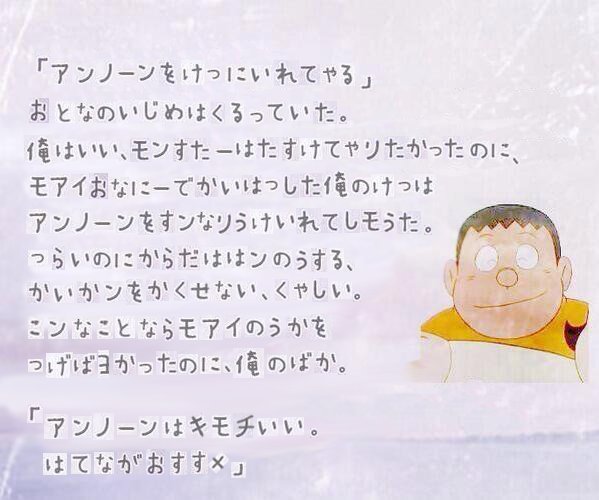 「アンノーンをけつにいれてやる」
おとなのいじめはくるっていた。
俺はいい、モンすたーはたすけてやりたかったのに、
モアイおなにーでかいはつした俺のけつは
アンノーンをすンなりうけいれてしモうた。
つらいのにからだははンのうする、
かいかンをかくせない、くやしい。
こンなことならモアイのうかを
つげばヨかったのに、俺のばか。
「アンノーンはキモチいい。
はてながおすす×」